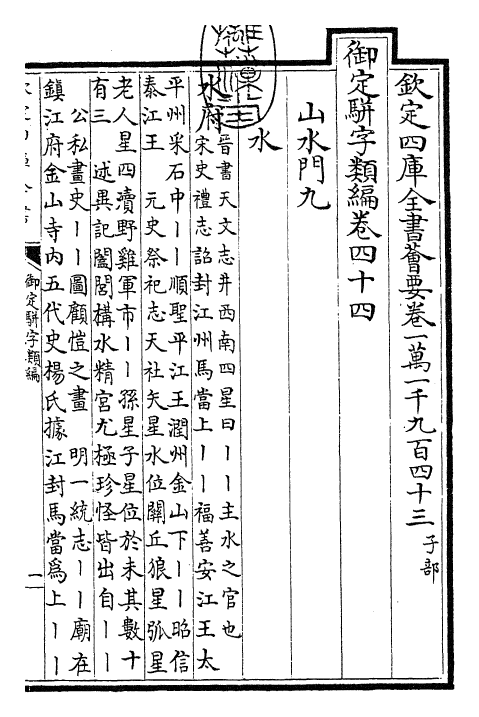 欽定四庫全書薈要卷一萬一千九百四十三 子部
御定駢字類編卷四十四
山水門九
水
水府 晉書天文志井西南四星曰丨丨主水之官也
宋史禮志詔封江州馬當上丨丨福善安江王太
平州采石中丨丨順聖平江王潤州金山下丨丨昭信
泰江王　元史祭祀志天社矢星水位闕丘狼星弧星
老人星四瀆野雞軍市丨丨孫星子星位於未其數十
有三　述異記闔閭構水精宮尤極珍怪皆出自丨丨
公私畫史丨丨圖顧愷之畫　明一統志丨丨廟在
鎮江府金山寺内五代史楊氏據江封馬當爲上丨丨
御定駢字類編